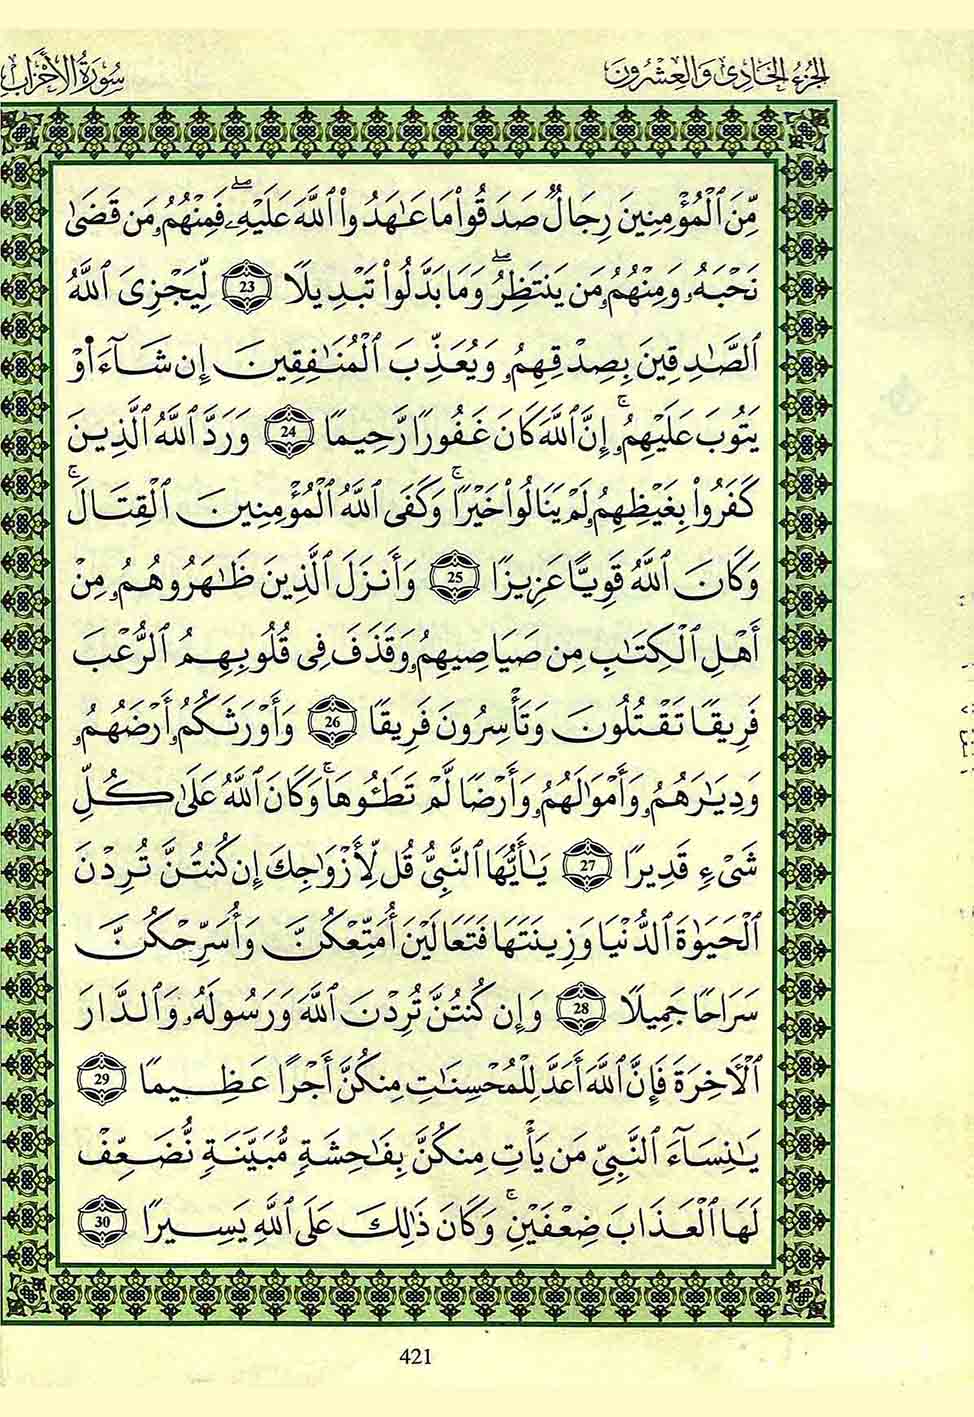 الجُزءُ الحَادِى وَالعِشْرُونَ
سُورَةُ الأَحْزَابِ
مِّنَ ٱلْمُؤْمِنِينَ رِجَالٌ صَدَقُوا۟ مَا عَٰهَدُوا۟ ٱللَّهَ عَلَيْهِۦۖ فَمِنْهُمُۥ مَن قَضَىٰ
نَحْبَهُۥ وَمِنْهُمُۥ مَن يَنتَظِرُۖ وَمَا بَدَّلُوا۟ تَبْدِيلًا 23 لِّيَجْزِىَ ٱللَّهُ
ٱلصَّٰدِقِينَ بِصِدْقِهِمُۥ وَيُعَذِّبَ ٱلْمُنَٰفِقِينَ إِن شَآءَ ا۬وْ
يَتُوبَ عَلَيْهِمُۥۚ إِنَّ ٱللَّهَ كَانَ غَفُورًا رَّحِيمًا 24 وَرَدَّ ٱللَّهُ ٱلَّذِينَ
كَفَرُوا۟ بِغَيْظِهِمُۥ لَمْ يَنَالُوا۟ خَيْرًاۚ وَكَفَى ٱللَّهُ ٱلْمُؤْمِنِينَ ٱلْقِتَالَۚ
وَكَانَ ٱللَّهُ قَوِيًّا عَزِيزًا 25 وَأَنزَلَ ٱلَّذِينَ ظَٰهَرُوهُمُۥ مِنْ
أَهْلِ ٱلْكِتَٰبِ مِن صَيَاصِيهِمُۥ وَقَذَفَ فِى قُلُوبِهِمُ ٱلرُّعْبَ
فَرِيقًا تَقْتُلُونَ وَتَأْسِرُونَ فَرِيقًا 26 وَأَوْرَثَكُمُۥ أَرْضَهُمُۥ
وَدِيَٰرَهُمُۥ وَأَمْوَٰلَهُمُۥ وَأَرْضًا لَّمْ تَطَـُٔوهَاۚ وَكَانَ ٱللَّهُ عَلَىٰ كُلِّ
شَىْءٍ قَدِيرًا 27 يَٰٓأَيُّهَا ٱلنَّبِىُّ قُل لِّأَزْوَٰجِكَ إِن كُنتُنَّ تُرِدْنَ
ٱلْحَيَوٰةَ ٱلدُّنْيَا وَزِينَتَهَا فَتَعَالَيْنَ أُمَتِّعْكُنَّ وَأُسَرِّحْكُنَّ
سَرَاحًا جَمِيلًا 28 وَإِن كُنتُنَّ تُرِدْنَ ٱللَّهَ وَرَسُولَهُۥ وَٱلدَّارَ
ٱلْأَخِرَةَ فَإِنَّ ٱللَّهَ أَعَدَّ لِلْمُحْسِنَٰتِ مِنكُنَّ أَجْرًا عَظِيمًا 29
يَٰنِسَآءَ ٱلنَّبِىِّ مَن يَأْتِ مِنكُنَّ بِفَٰحِشَةٍ مُّبَيَّنَةٍ نُّضَعِّفْ
لَهَا ٱلْعَذَابَ ضِعْفَيْنِۚ وَكَانَ ذَٰلِكَ عَلَى ٱللَّهِ يَسِيرًا 30
421